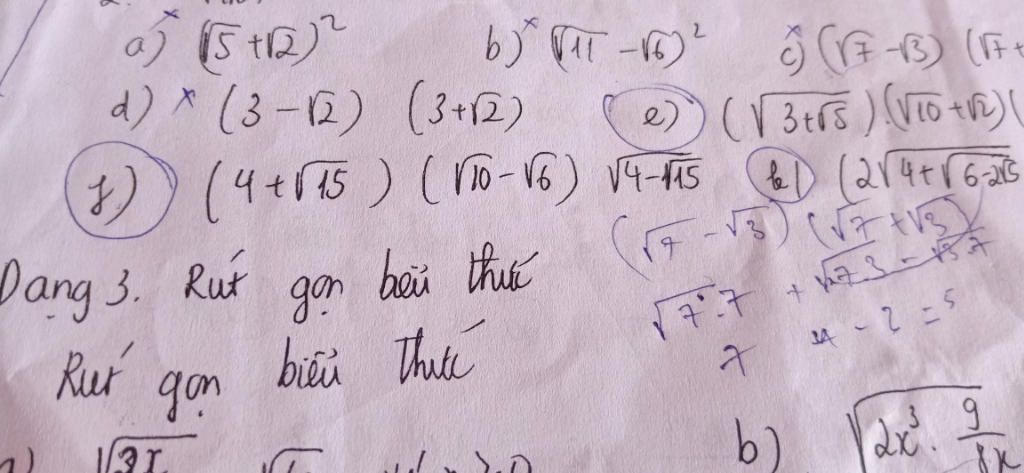 a) (√5 + √2)² b) (√11 - √6)² c) (√7 - √3) (√7 +
d) (3 - √2) (3 + √2) e) (√(3+√5)).(√10 + √2)(
f) (4 + √15) (√10 - √6) √(4-√15) h) (2√(4+√(6-2√5
(√7 - √3) (√7 + √3)
√7.7 + √7.3 - √3.7
7
Dạng 3. Rút gọn biểu thức
Rút gọn biểu thức
b) √(2x³ . 9/8x